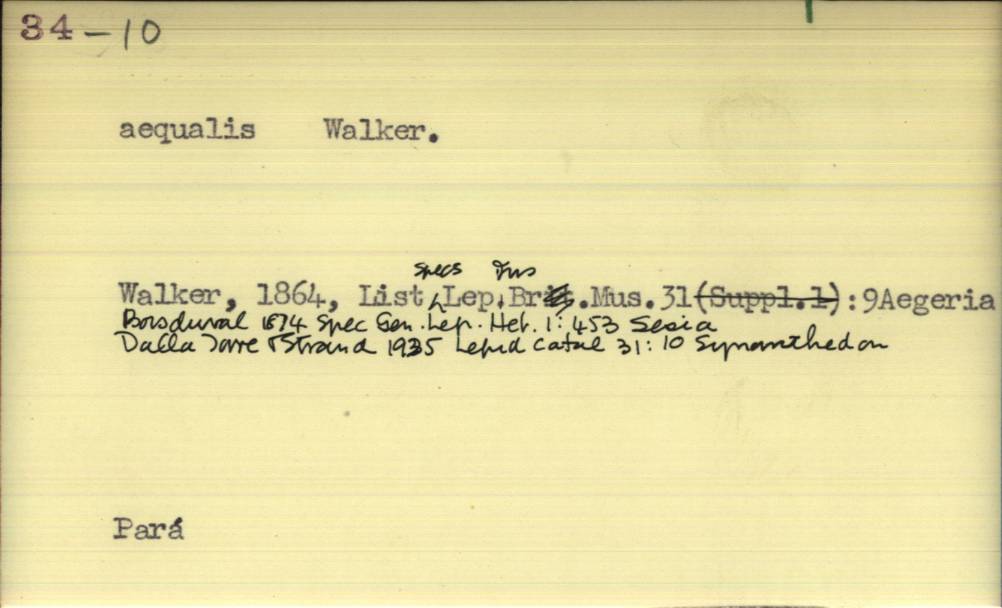 34-10
aequalis Walker.
specs Ins
Walker, 1864, List Lep. Br. Mus. 31 (Suppl.1):9Aegeria
Boisduval 1874 Spec Gen. Lep. Het. 1:453 Sesia
Dalla Torre & Strand 1935 Lepid Catal 31:10 Synanthedon
Pará